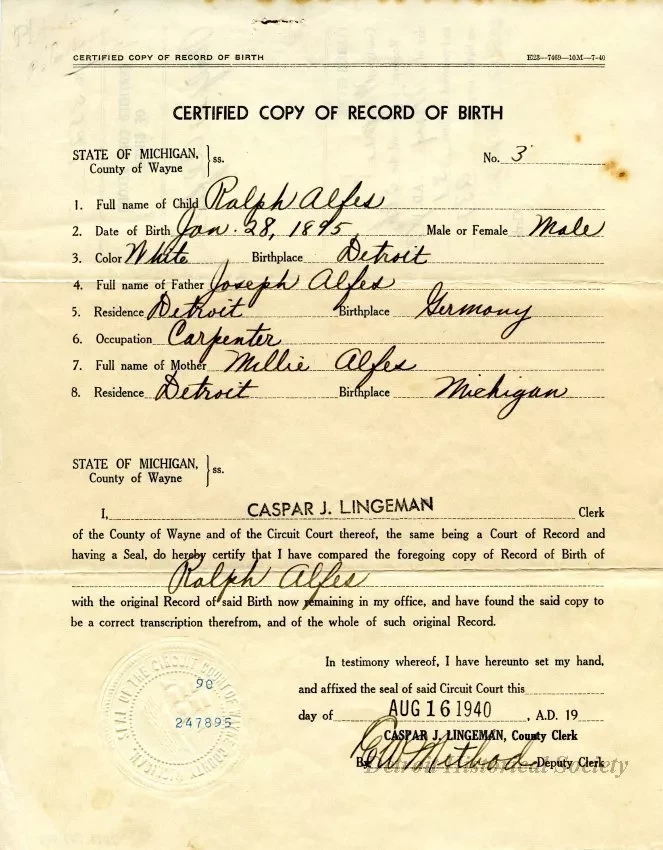 CERTIFIED COPY OF RECORD OF BIRTH E23—7469—10M—7-40
CERTIFIED COPY OF RECORD OF BIRTH
STATE OF MICHIGAN, } ss. No. 3
County of Wayne
1. Full name of Child Ralph Alfes
2. Date of Birth Jan. 28, 1895 Male or Female Male
3. Color White Birthplace Detroit
4. Full name of Father Joseph Alfes
5. Residence Detroit Birthplace Germany
6. Occupation Carpenter
7. Full name of Mother Millie Alfes
8. Residence Detroit Birthplace Michigan
STATE OF MICHIGAN, } ss.
County of Wayne
I, CASPAR J. LINGEMAN Clerk
of the County of Wayne and of the Circuit Court thereof, the same being a Court of Record and
having a Seal, do hereby certify that I have compared the foregoing copy of Record of Birth of
Ralph Alfes
with the original Record of said Birth now remaining in my office, and have found the said copy to
be a correct transcription therefrom, and of the whole of such original Record.
In testimony whereof, I have hereunto set my hand,
and affixed the seal of said Circuit Court this
day of AUG 16 1940, A.D. 19
CASPAR J. LINGEMAN, County Clerk
By Deputy Clerk
Detroit Historical Society
SEAL OF THE CIRCUIT COURT OF WAYNE COUNTY MICHIGAN
90
247895